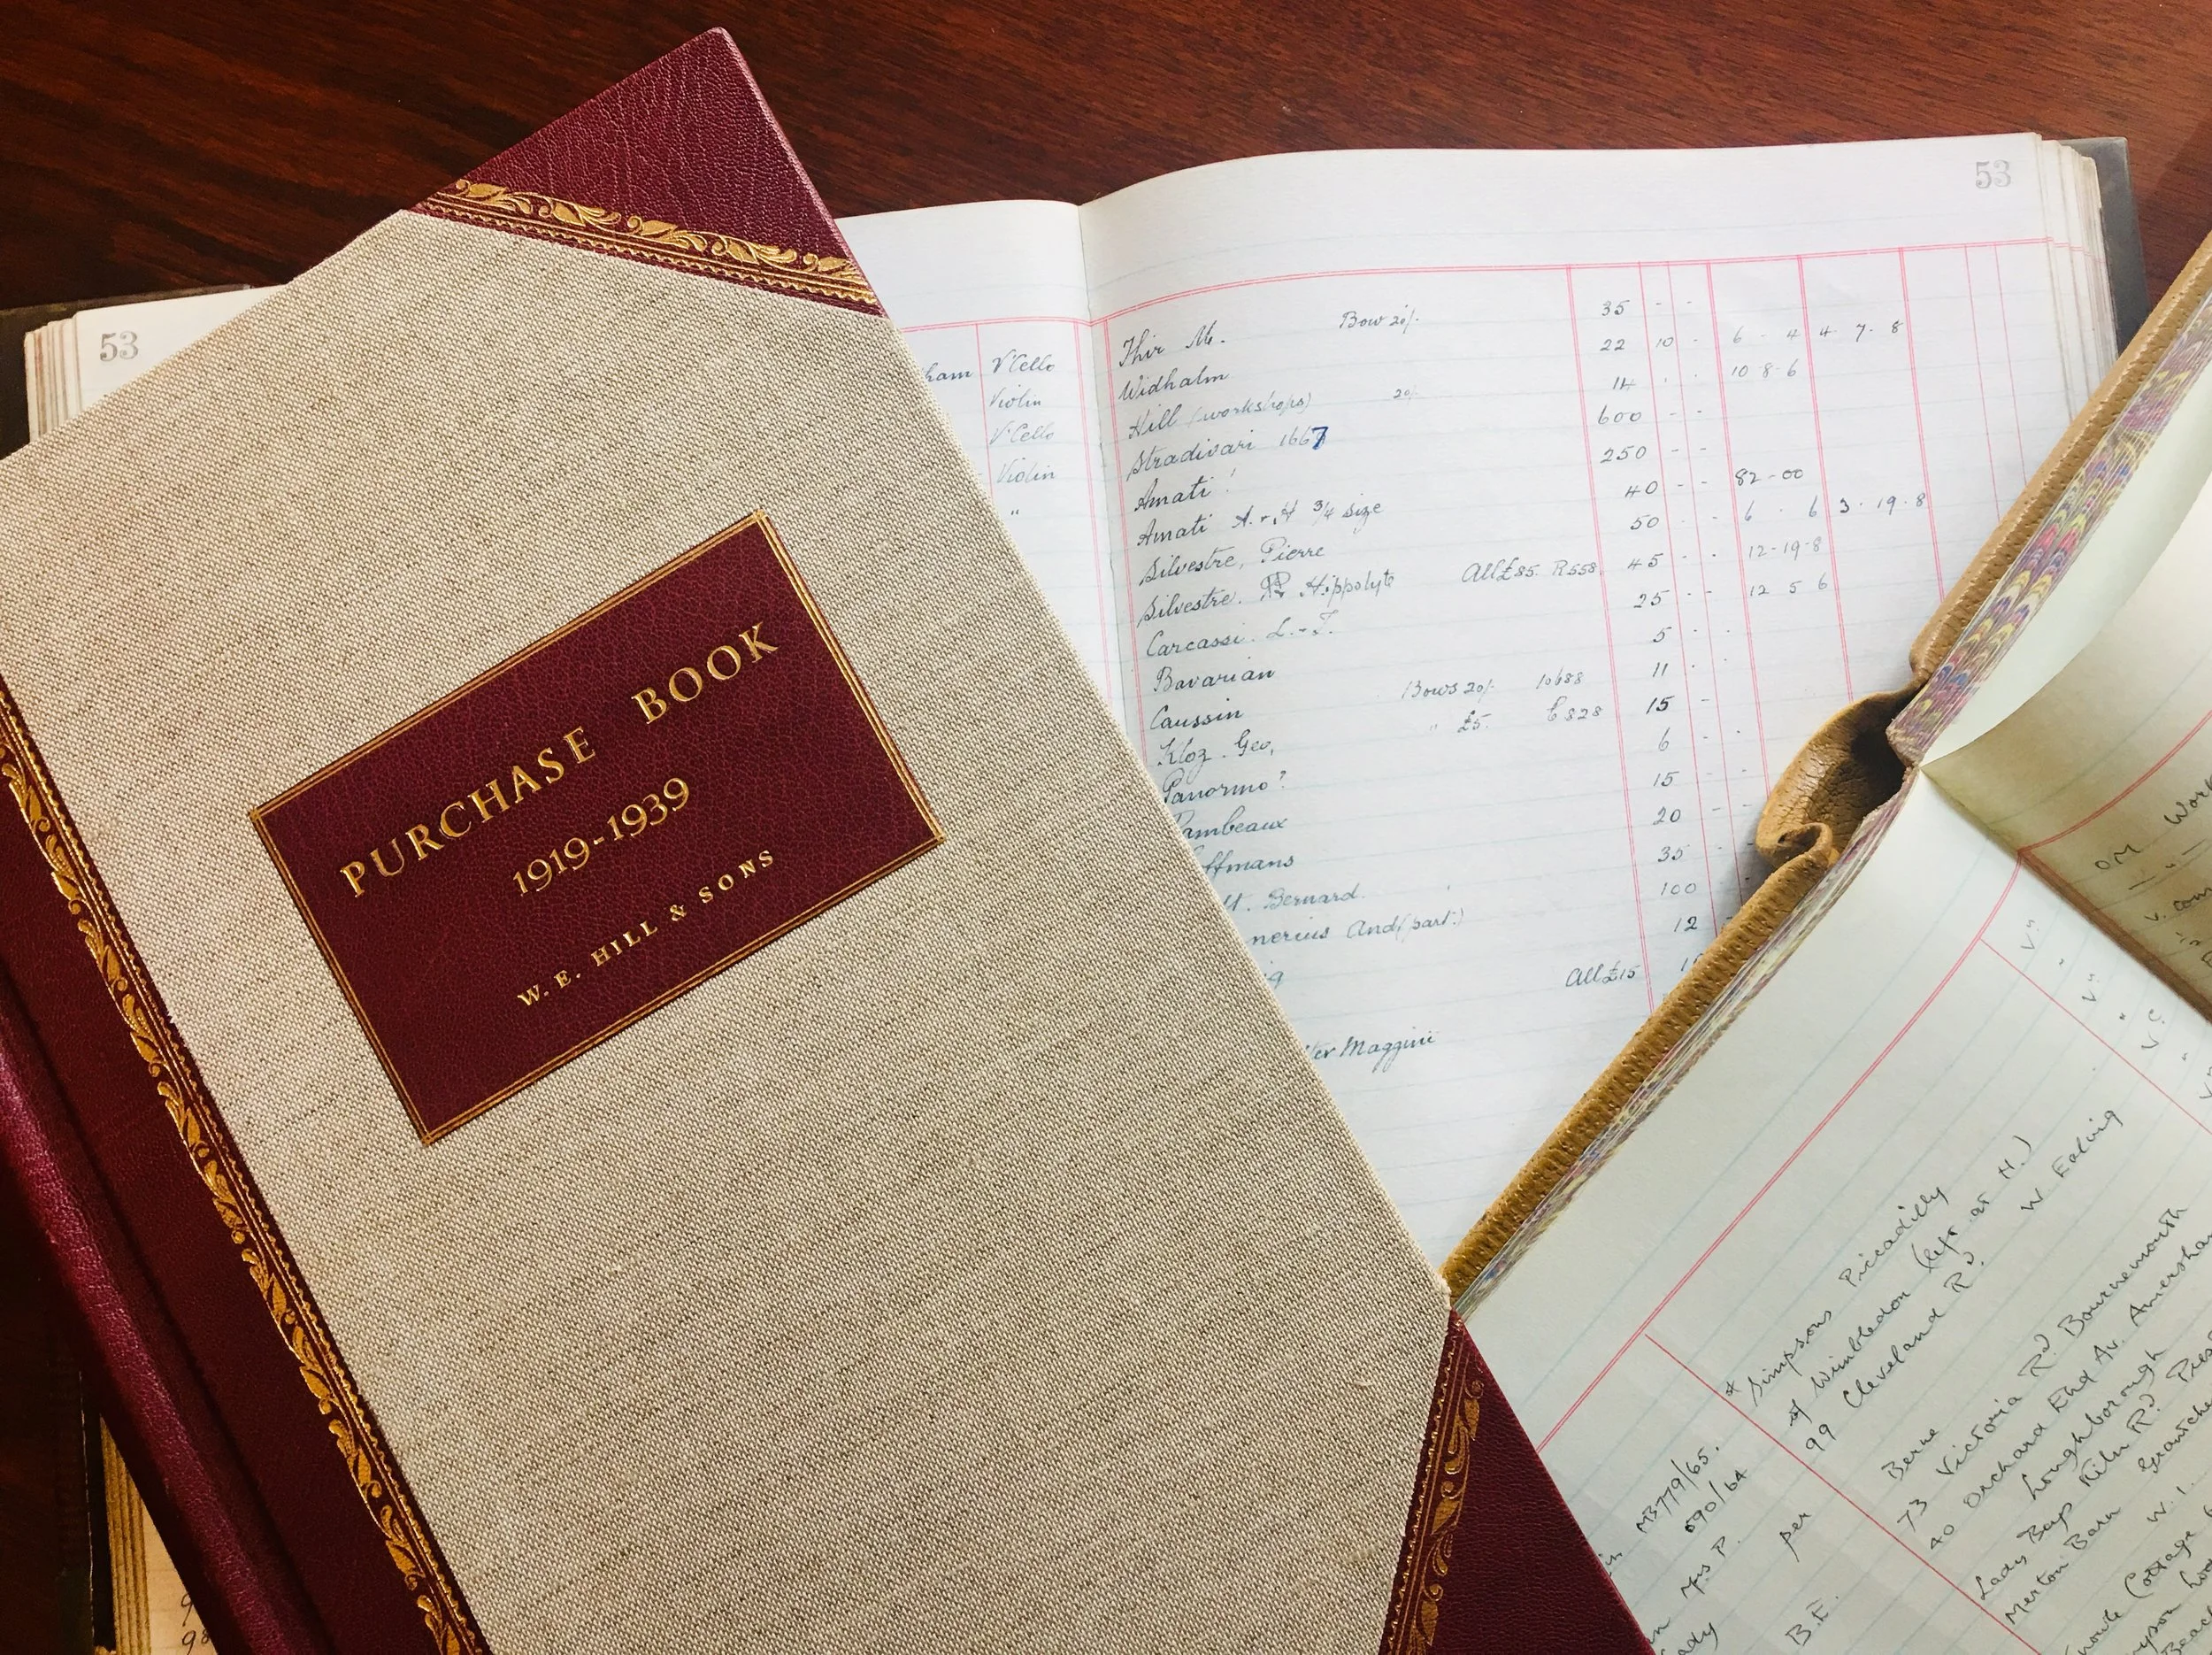 PURCHASE BOOK
1919-1939
W. E. HILL & SONS
53
53
ham V'Cello
Violin
V'Cello
Violin
"
Thir M. Bow 20/- 35 - -
Widhalm 22 10 - 6 - 4 4 - 7 - 8
Hill (workshops) 20/- 14 - - 10-8-6
Stradivari 1667 600 - -
Amati ! 250 - -
Amati A. & H 3/4 size 40 - - 82-00
Silvestre, Pierre 50 - - 6 - 6 3 - 19 - 8
Silvestre. Hippolyte All £85. R558. 45 - - 12-19-8
Carcassi. L. - T. 25 - - 12 5 6
Bavarian 5 - -
Caussin Bows 20/- 10688 11 - -
Kloz. Geo, " £5. 15 -
Panormo? 6 - -
ambeaux 15 - -
offmans 20 - -
Bernard. 35 -
nerius And (part.) 100
12 -
All £15
ter Maggini
* Simpsons Piccadilly
of Wimbledon (left at H.)
99 Cleveland Rd. W Ealing
MB779/65. Berne
690/64 73 Victoria Rd Bournemouth
Mrs P. per 40 Orchard End Av. Amersham
Loughborough
ady B.E. Lady Bays Kiln Rd.
Merton Barn
W. 1.
Cottage
OM Work
V. con
Vn
"
Vn
"
V.C.
"